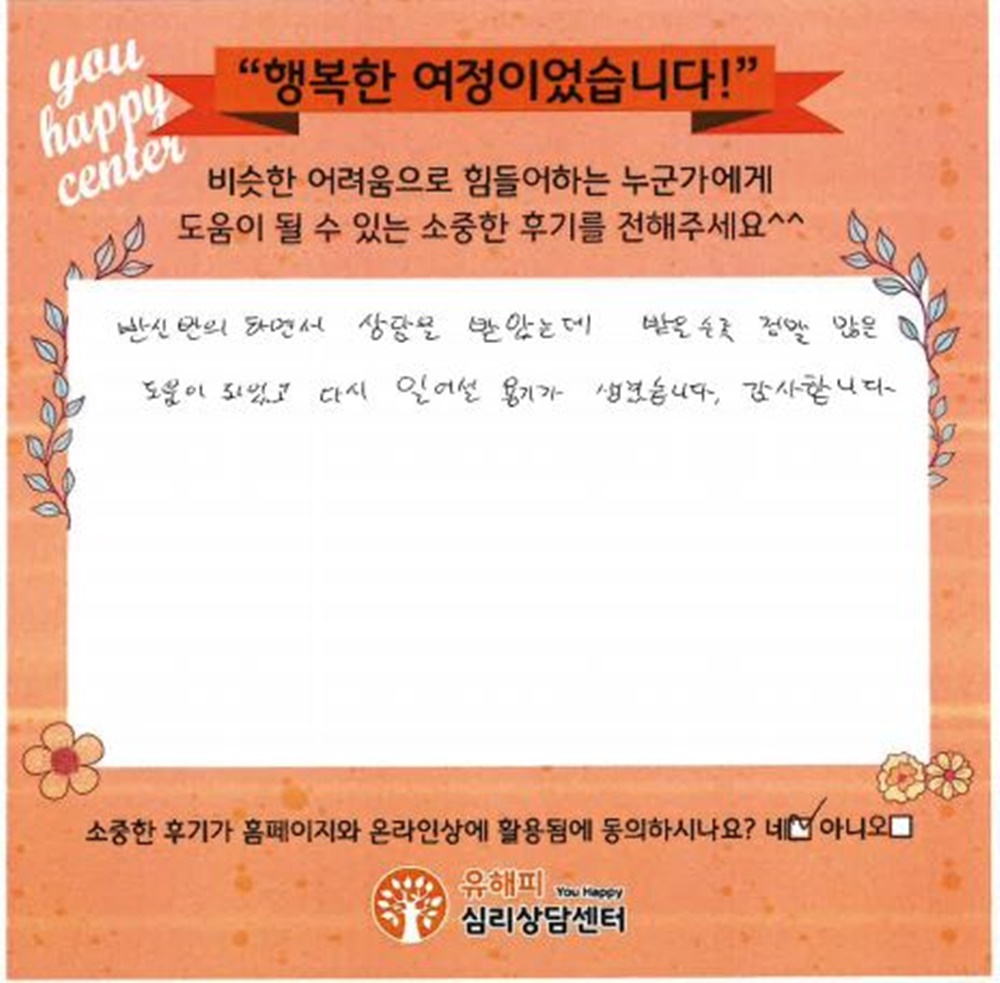 you
happy
center
“행복한 여정이었습니다!”
비슷한 어려움으로 힘들어하는 누군가에게
도움이 될 수 있는 소중한 후기를 전해주세요^^
반신반의 하면서 상담을 받았는데 받을수록 정말 많은
도움이 되었고 다시 일어설 용기가 생겼습니다, 감사합니다
소중한 후기가 홈페이지와 온라인상에 활용됨에 동의하시나요? 네 아니오
유해피 You Happy
심리상담센터